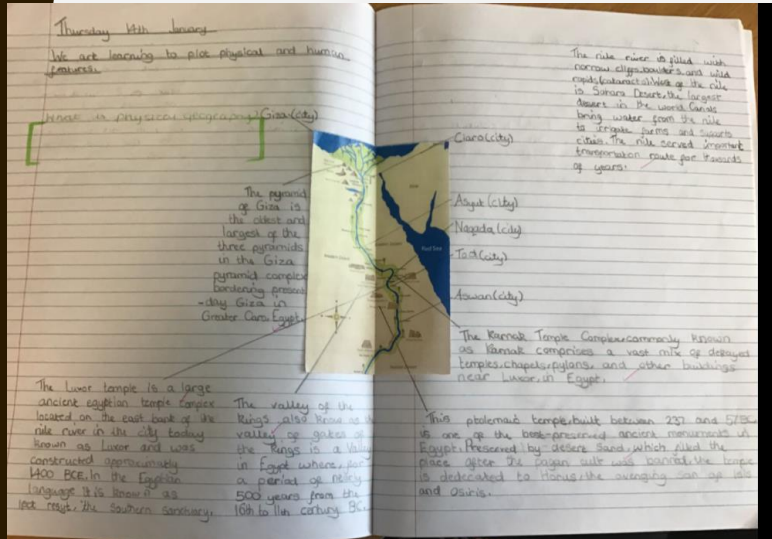 Thursday 14th January
We are learning to plot physical and human
features.
What is physical geography?
Giza (city)
The pyramid
of Giza is
the oldest and
largest of the
three pyramids
in the Giza
pyramid complex
bordering present
-day Giza in
Greater Cairo, Egypt.
The Luxor temple is a large
ancient egyptian temple complex
located on the east bank of the
nile river in the city today
known as Luxor and was
constructed approximately
1400 BCE. In the Egyptian
language it is known as
ipet resyt, "the southern sanctuary.
The valley of the
Kings, also know as the
valley of gates of
the Kings is a Valley
in Egypt where, for
a period of nearly
500 years from the
16th to 11th century BC.
The nile river is filled with
narrow cliffs, boulders and wild
rapids (cataracts). West of the nile
is Sahara Desert, the largest
desert in the world. Canals
bring water from the nile
to irrigate farms and supports
cities. The nile served important
transportation route for thousands
of years.
(city)
Asyut (city)
Nagada (city)
Tod (city)
Aswan (city)
Red Sea
The Karnak Temple Complex, commonly known
as Karnak comprises a vast mix of decayed
temples, chapels, pylons, and other buildings
near Luxor, in Egypt.
This ptolemaic temple, built between 237 and 57BC
is one of the best-preserved ancient monuments in
Egypt. Preserved by desert sand, which filled the
place after the pagan cult was banned, the temple
is dedecated to Horus, the avenging son of isis
and osiris.